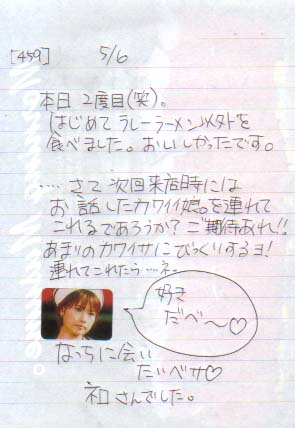 [459] 5/6
本日 2度目(笑)。
はじめて ラーメン以外を
食べました。おいしかったです。
.... さて 次回来店時には
お話したカワイイ娘。を連れて
これるであろうか? ご期待あれ!!
あまりのカワイサにびっくりするヨ!
連れてこれたら...ネ。
好き
だべ〜♡
なっちに会い
たいべサ♡
さんでした。